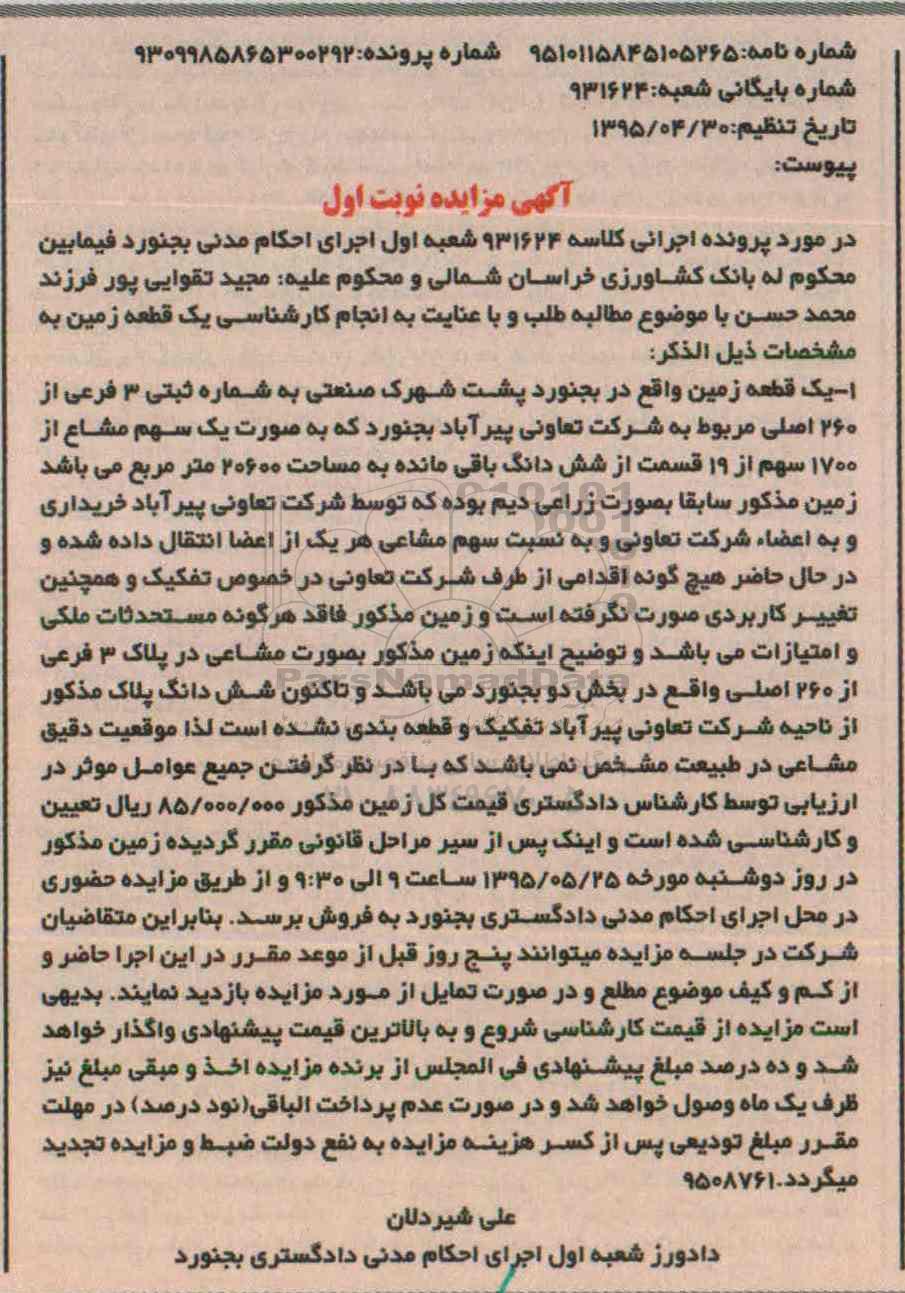 شماره نامه:۹۵۱۰۱۱۵۸۴۵۱۰۵۲۶۵ شماره پرونده:۹۳۰۹۹۸۵۸۶۵۳۰۰۲۹۲
شماره بایگانی شعبه:۹۳۱۶۲۴
تاریخ تنظیم:۱۳۹۵/۰۴/۳۰
پیوست:
آگهی مزایده نوبت اول
در مورد پرونده اجرائی کلاسه ۹۳۱۶۲۴ شعبه اول اجرای احکام مدنی بجنورد فیمابین
محکوم له بانک کشاورزی خراسان شمالی و محکوم علیه: مجید تقوایی پور فرزند
محمد حسن با موضوع مطالبه طلب و با عنایت به انجام کارشناسی یک قطعه زمین به
مشخصات ذیل الذکر:
۱-یک قطعه زمین واقع در بجنورد پشت شهرک صنعتی به شماره ثبتی ۳ فرعی از
۲۶۰ اصلی مربوط به شرکت تعاونی پیرآباد بجنورد که به صورت یک سهم مشاع از
۱۷۰۰ سهم از ۱۹ قسمت از شش دانگ باقی مانده به مساحت ۲۰۶۰۰ متر مربع می باشد
زمین مذکور سابقا بصورت زراعی دیم بوده که توسط شرکت تعاونی پیرآباد خریداری
و به اعضاء شرکت تعاونی و به نسبت سهم مشاعی هر یک از اعضا انتقال داده شده و
در حال حاضر هیچ گونه اقدامی از طرف شرکت تعاونی در خصوص تفکیک و همچنین
تغییر کاربردی صورت نگرفته است و زمین مذکور فاقد هرگونه مستحدثات ملکی
و امتیازات می باشد و توضیح اینکه زمین مذکور بصورت مشاعی در پلاک ۳ فرعی
از ۲۶۰ اصلی واقع در بخش دو بجنورد می باشد و تاکنون شش دانگ پلاک مذکور
از ناحیه شرکت تعاونی پیرآباد تفکیک و قطعه بندی نشده است لذا موقعیت دقیق
مشاعی در طبیعت مشخص نمی باشد که با در نظر گرفتن جمیع عوامل موثر در
ارزیابی توسط کارشناس دادگستری قیمت کل زمین مذکور ۸۵/۰۰۰/۰۰۰ ریال تعیین
و کارشناسی شده است و اینک پس از سیر مراحل قانونی مقرر گردیده زمین مذکور
در روز دوشنبه مورخه ۱۳۹۵/۰۵/۲۵ ساعت ۹ الی ۹:۳۰ و از طریق مزایده حضوری
در محل اجرای احکام مدنی دادگستری بجنورد به فروش برسد. بنابراین متقاضیان
شرکت در جلسه مزایده میتوانند پنج روز قبل از موعد مقرر در این اجرا حاضر و
از کم و کیف موضوع مطلع و در صورت تمایل از مورد مزایده بازدید نمایند. بدیهی
است مزایده از قیمت کارشناسی شروع و به بالاترین قیمت پیشنهادی واگذار خواهد
شد و ده درصد مبلغ پیشنهادی فی المجلس از برنده مزایده اخذ و مبقی مبلغ نیز
ظرف یک ماه وصول خواهد شد و در صورت عدم پرداخت الباقی(نود درصد) در مهلت
مقرر مبلغ تودیعی پس از کسر هزینه مزایده به نفع دولت ضبط و مزایده تجدید
میگردد.۹۵۰۸۷۶۱
علی شیردلان
دادورز شعبه اول اجرای احکام مدنی دادگستری بجنورد
ParsNamadData